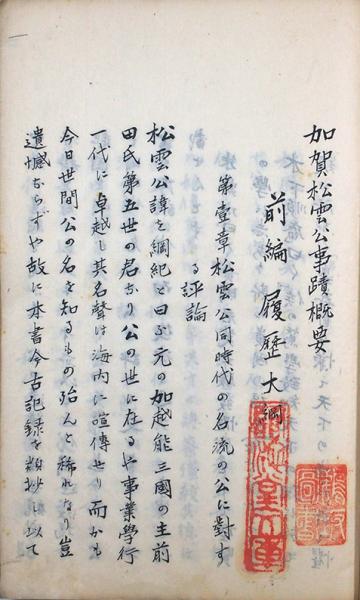 加賀松雲公事蹟概要
前編 履歴大綱
第壹章 松雲公同時代の名流の公に對す
る評論
松雲公諱を綱紀と曰ふ元の加越能三國の主前
田氏第五世の君なり公の世に在るや事業學行
一代に卓越し其名聲は海内に喧傳せり而かも
今日世間公の名を知るもの殆んと稀れなり豈
遺憾ならずや故に本書今古記録を類抄し以て